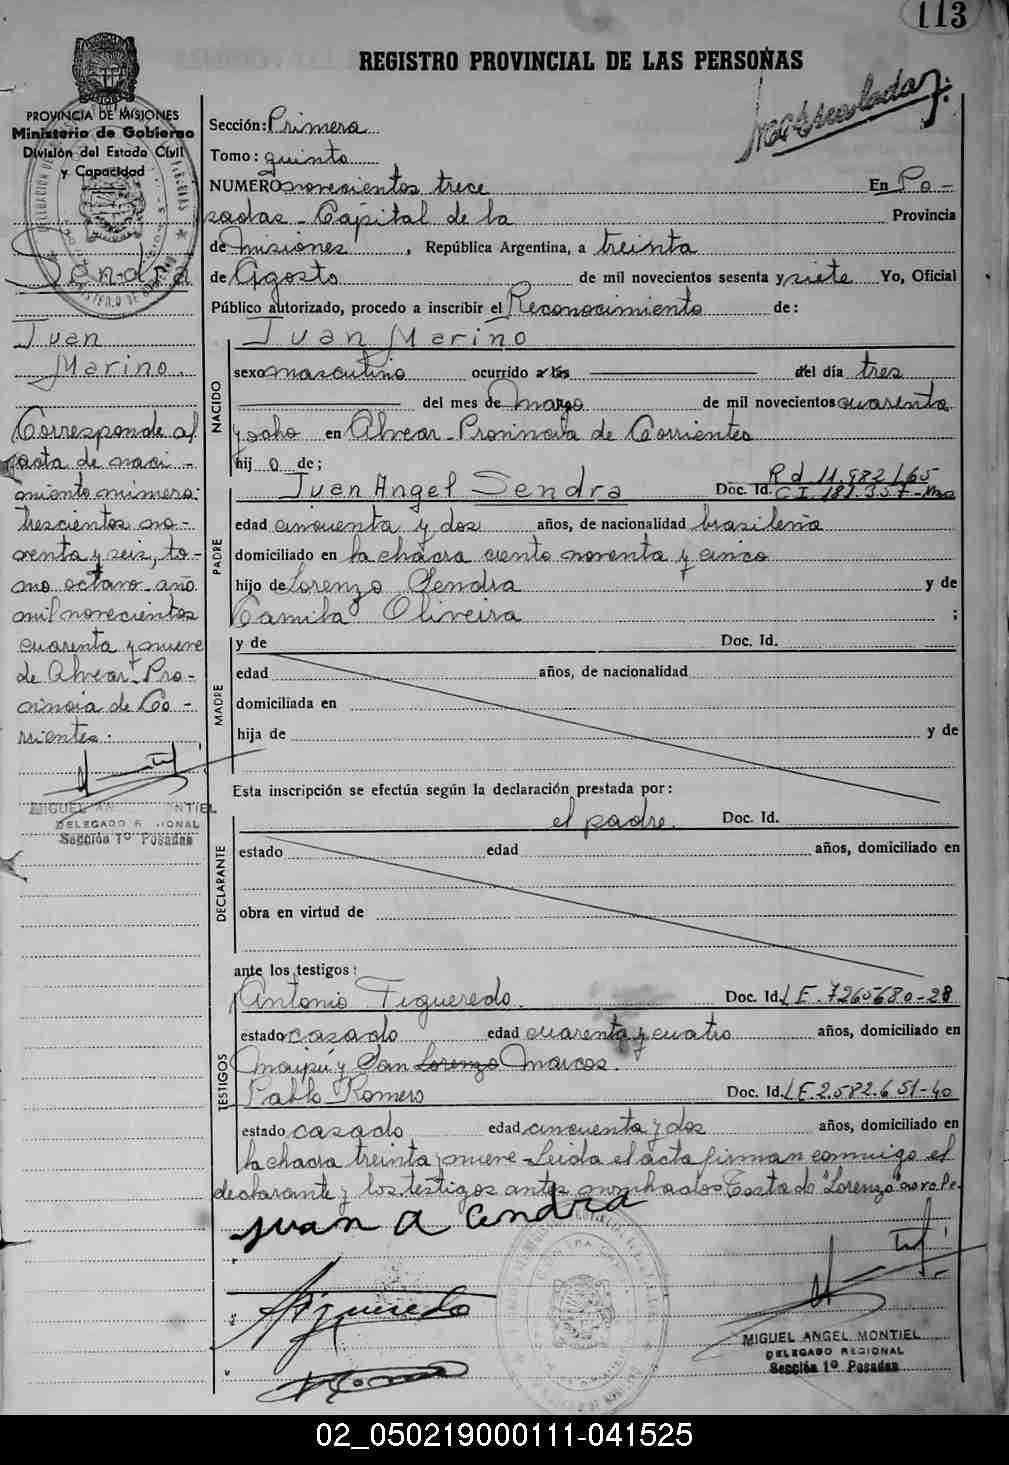 113
REGISTRO PROVINCIAL DE LAS PERSONAS
PROVINCIA DE MISIONES
Ministerio de Gobierno
División del Estado Civil
y Capacidad
Sendra
Juan
Marino.
Corresponde al
acta de naci -
miento número:
trescientos no-
venta y seis, to-
mo octavo - año
mil novecientos
cuarenta y nueve
de Alvear - Pro-
vincia de Co -
rrientes.
MIGUEL AN NTIEL
DELEGADO R IONAL
Sección 1º Posadas
Sección: Primera
Tomo: quinto
NUMERO novecientos trece En Po -
sadas - Capital de la Provincia
de Misiones, República Argentina, a treinta
de Agosto de mil novecientos sesenta y siete Yo, Oficial
Público autorizado, procedo a inscribir el Reconocimiento de:
NACIDO
Juan Marino
sexo masculino ocurrido a las del día tres
del mes de Marzo de mil novecientos cuarenta
y ocho en Alvear - Provincia de Corrientes
hij o de;
PADRE
Juan Angel Sendra Doc. Id. Rd 11.982/65
C I. 181.357 - Mnes
edad cincuenta y dos años, de nacionalidad brasileña
domiciliado en la chacra ciento noventa y cinco
hijo de Lorenzo Sendra y de
Camila Oliveira ;
MADRE
y de Doc. Id.
edad años, de nacionalidad
domiciliada en
hija de y de
Esta inscripción se efectúa según la declaración prestada por:
DECLARANTE
el padre. Doc. Id.
estado edad años, domiciliado en
obra en virtud de
ante los testigos:
TESTIGOS
Antonio Figueredo. Doc. Id. L E. 7265680-28
estado casado edad cuarenta y cuatro años, domiciliado en
Maipú y San Lorenzo Marcos.
Pablo Romero Doc. Id. L E. 2.582.651-40
estado casado edad cincuenta y dos años, domiciliado en
la chacra treinta y nueve - Leída el acta firman conmigo el
declarante y los testigos antes nombrados Testado "Lorenzo" no vale.
juan A Cendra
AFigueredo
MIGUEL ANGEL MONTIEL
DELEGADO REGIONAL
Sección 1º Posadas
02_050219000111-041525